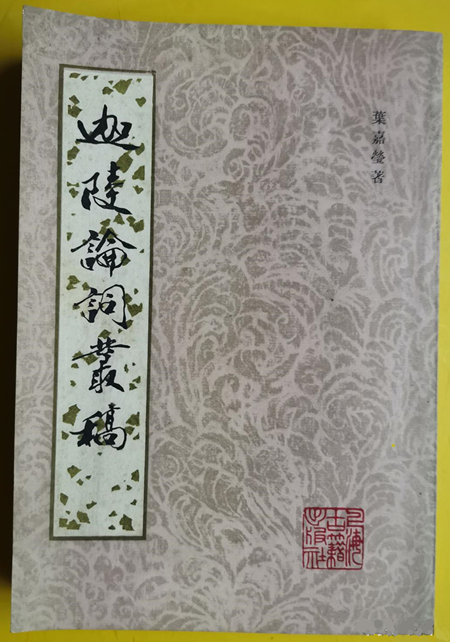 葉嘉瑩著
迦陵論詞叢稿
上海
古籍
出版社